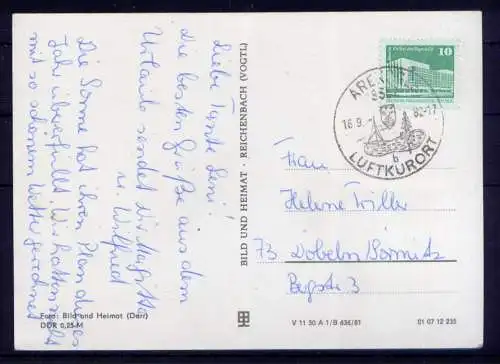 Liebe Tante Leni!
Die besten Grüße aus dem
Urlaub sendet dir Magitta
u. Wilfried
Die Sonne hat ihren Plan dieses
Jahr übererfüllt. Wir hatten nicht
mit so schönem Wetter gerechnet
Foto: Bild und Heimat (Darr)
DDR 0,25 M
BILD UND HEIMAT · REICHENBACH (VOGTL)
10
16.9. 82-17
LUFTKURORT
b
Frau
Helene Triller
73 Döbeln-Sörmitz
Bergstr. 3
V 11 50 A 1/B 636/81
01 07 12 235